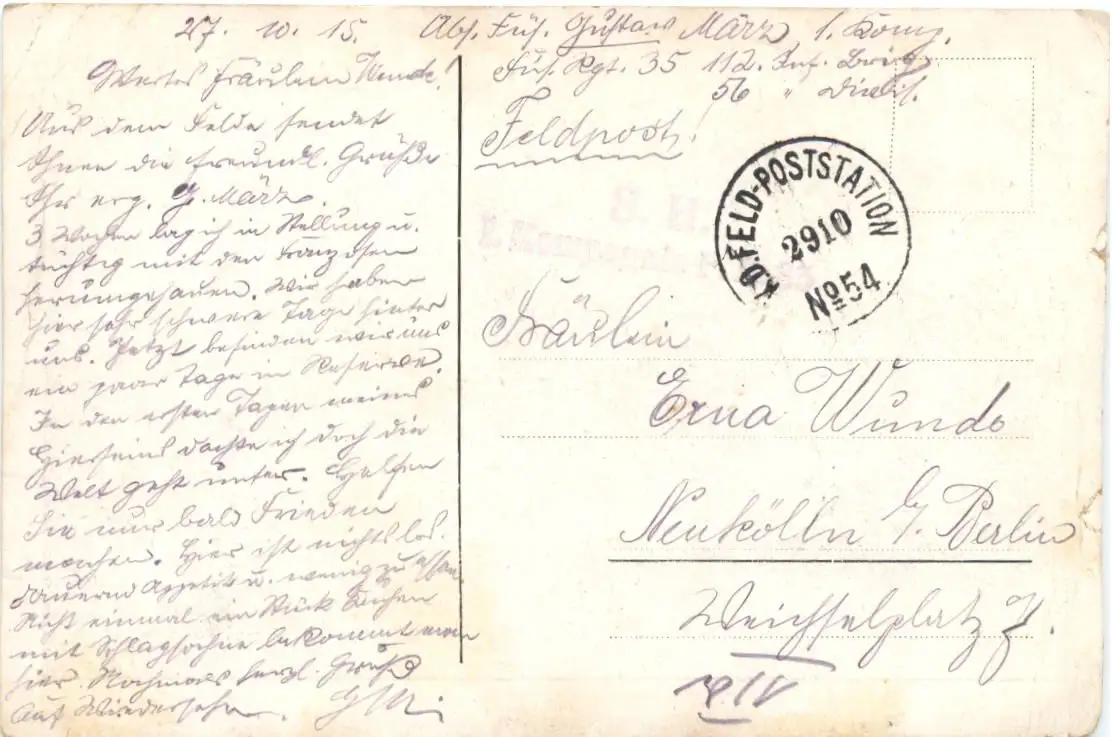 27. 10. 15. Abs. Füs. Gustav März 1. Komp.
Füs. Rgt. 35 112. Inf. Brig.
56 " Divis.
Feldpost!
Wertes Fräulein Wunde!
Aus dem Felde sendet
Ihnen die freundl. Grüße
Ihr erg. G. März.
3 Wochen lag ich in Stellung u.
tüchtig mit den Franzosen
herumgehauen. Wir haben
hier sehr schwere Tage hinter
uns. Jetzt befinden wir uns
ein paar Tage in Reserve.
In den ersten Tagen meines
Hierseins dachte ich doch die
Welt geht unter. Helfen
Sie nur bald Frieden
machen. Hier ist nichts los.
dauernd Appetit u. wenig zu essen.
Nicht einmal ein Stück Kuchen
mit Schlagsahne bekommt man
hier. Nochmals herzl. Gruß
Auf Wiedersehn.
K.D. FELD-POSTSTATION
2910
No 54
Fräulein
Erna Wunde
Neukölln b/ Berlin
Weichselplatz 7.
IV